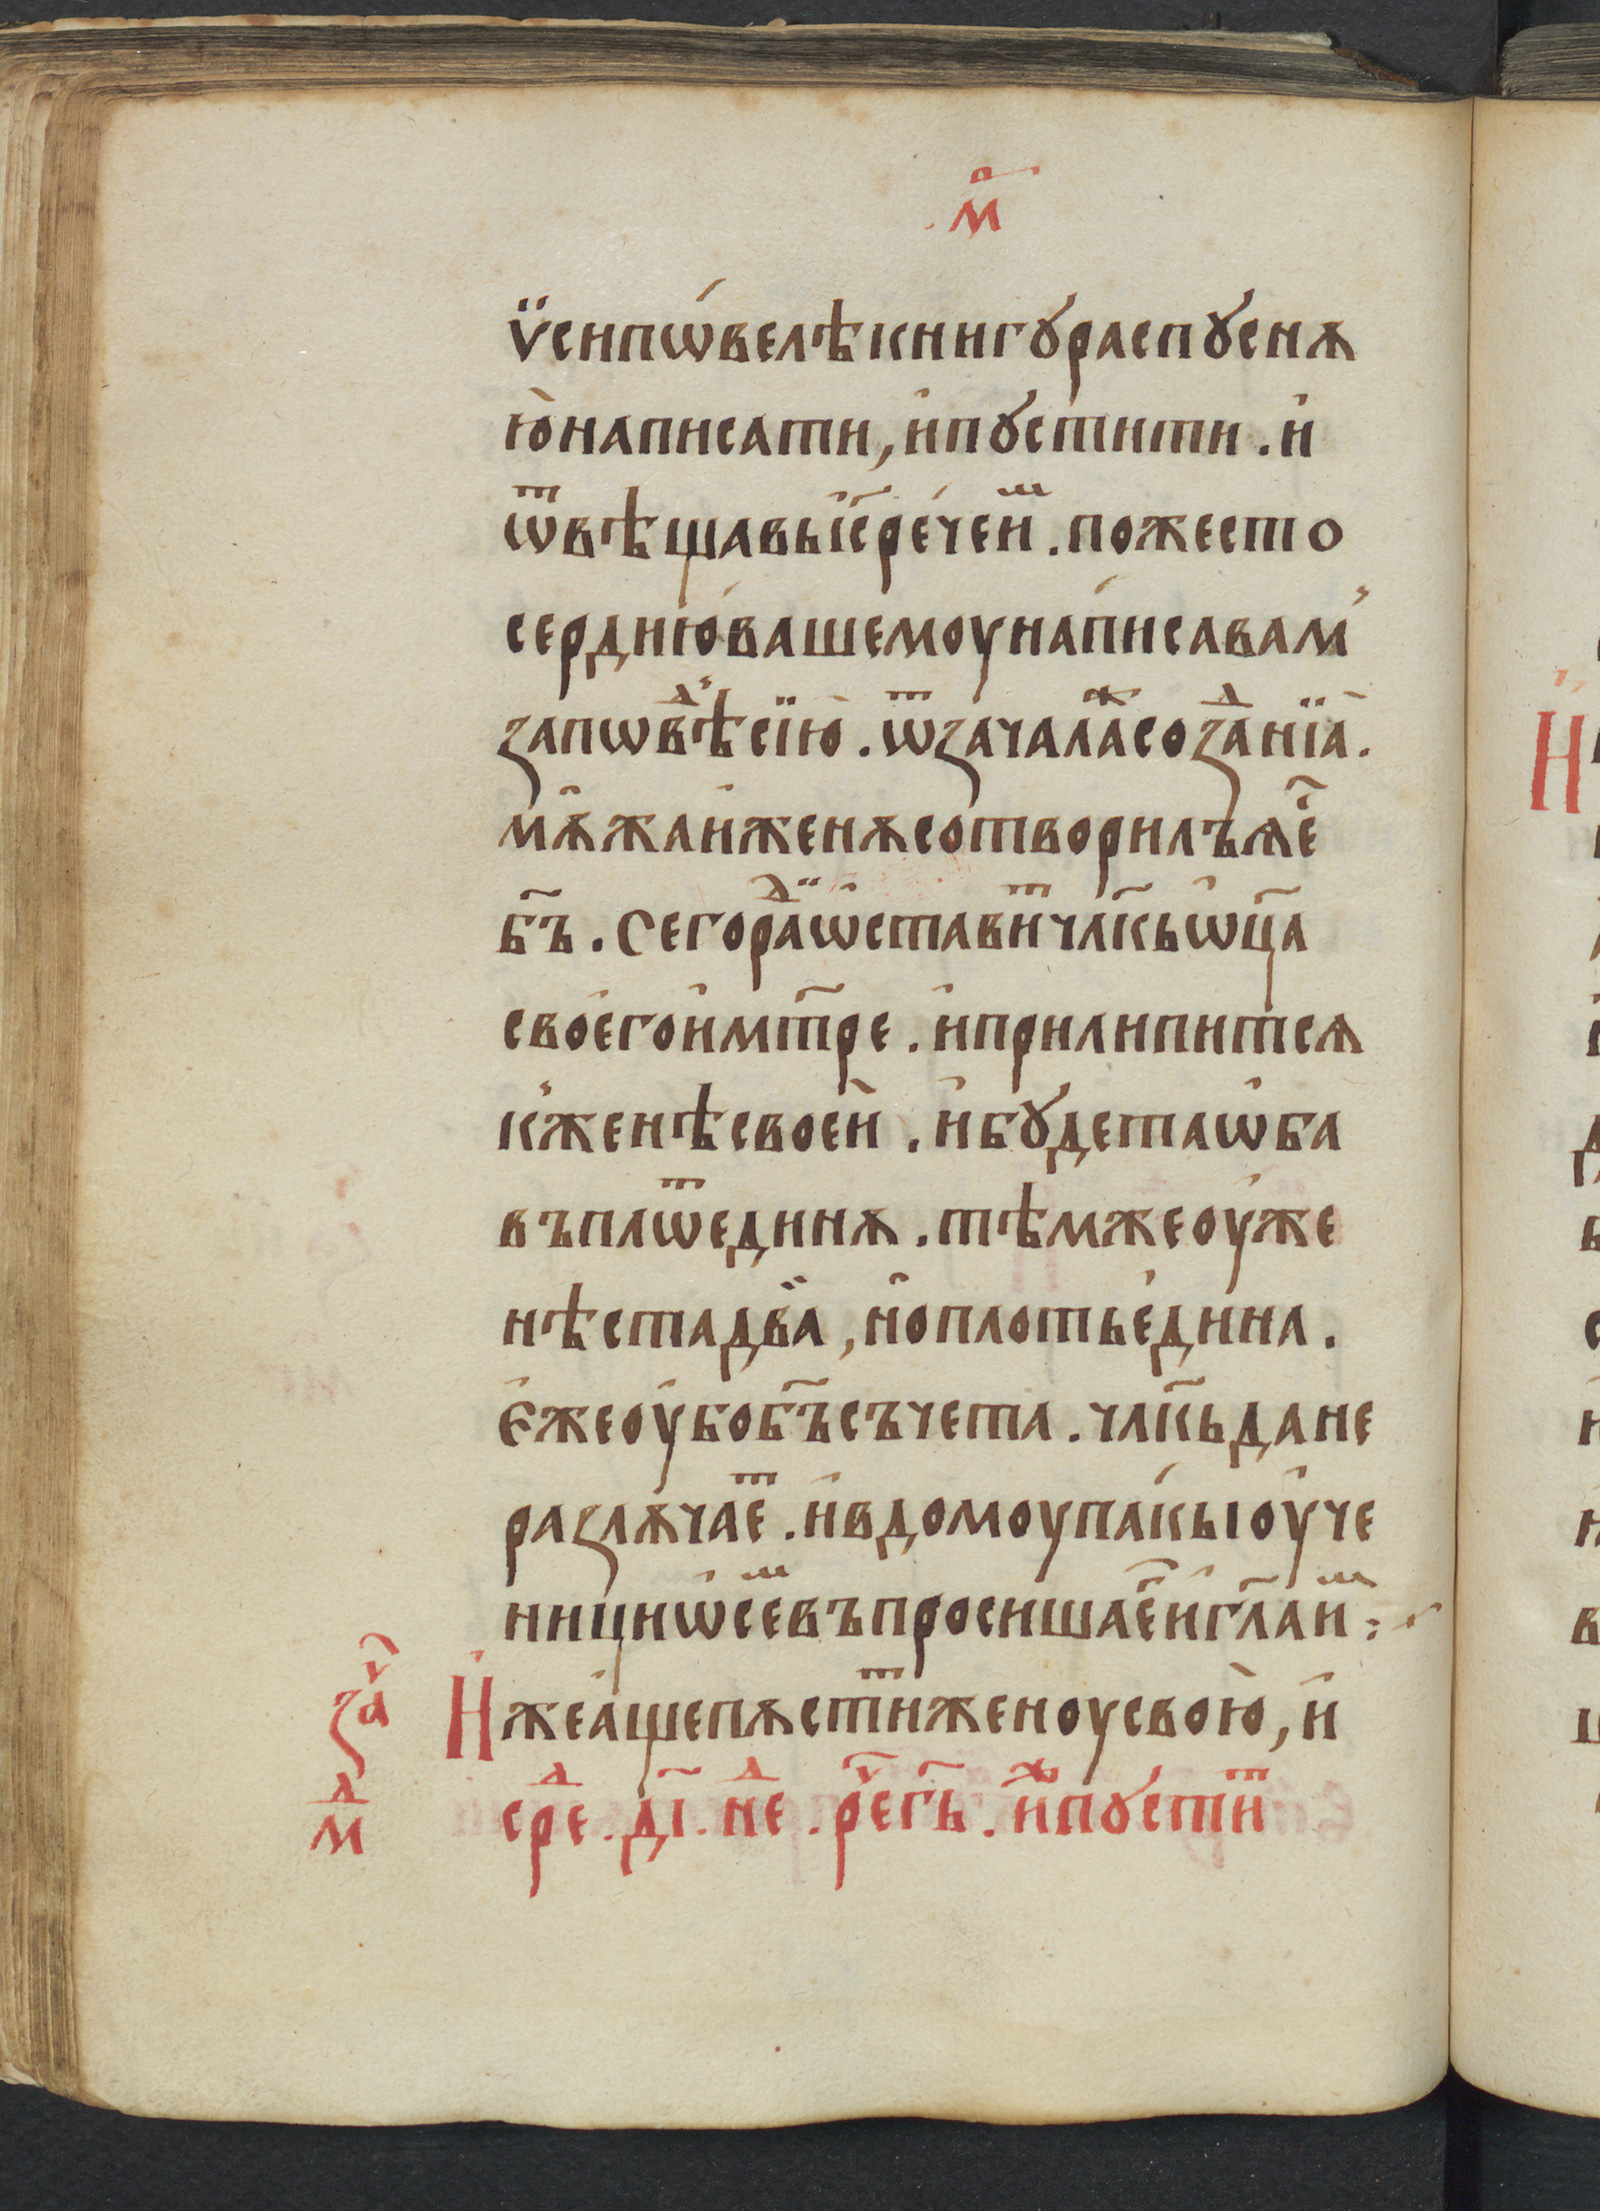 м҃а
ѵ҆сипѡ́велѣкнигꙋраспꙋснѧ
ю҆написати, и҆пꙋстити. и҆
ѿвѣщавьі҆с҃рече́и҆ⷲ. пожесто
сердню҆вашемоунапи́савам̾
запѡвѣⷣ̾сїю. ѿзачалаⷤсозаⷣнїа.
мѫжаи҆женѫсотворилъѫе҆҃
бг҃ъ. Сегораⷣѡ҆ставиⷮ члк҃ьѡц҃а
свое҆гои҆мт҃ре. и҆прилипитсѧ
к̾женѣсвоеи҆. и҆бꙋдетаѡ҆ба
въплѿединѫ. тѣмжеоуже
нѣстадва̀, но҆плотье҆дина.
е҆жеоубобг҃ъсъчета. члк҃ьдане
разлѫчаеⷮ. и҆вдомоупа́кыоу҆че
нициѡ҆сеⷨвъпросишае҆҃и҆гл҃аиⷲ :
И҆жеа҆щепѫстиⷮженоусвою̀, и҆
среⷣ. д҃і. неⷣ. ре҃гь҃. и҆ⷤпꙋстиⷮ
за҃ч
мⷣ